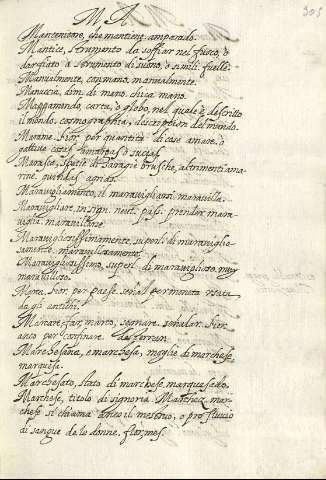 M. A.
305
Mantenitore, che mantiene, amparado.
Mantice, strumento da soffiar nel fuoco, o
dargliato a strumento di suono, o simili. fuelle.
Manualmente, con mano, manualmente.
Manuccia, dim. di mano, chica mano.
Mappamondo, carta, o globo, nel quale è descritto
il mondo. cosmographia, descreption del mundo.
Marame. Sior. per quantità di cose amare, o
cattive
Marasca, spetie di saragie brusche, altrimenti ama
rine. guindas agrias.
Maravigliamento, il maravigliarsi. maravilla.
Maravigliare, in sign. neut. pass. prender mara-
viglia. maravillarse
Maravigliosissimamente, superl. di maraviglio-
samente. maravillosamente.
Maravigliosissimo, superl. di maraviglioso, muy
maravilloso.
Marca, sior. per paese. señal per monata usata
da gli antichi.
Marcare, far, marco, segnare, señalar. Sior.
anco per confinare.
Marchesana, e marchesa, moglie di marchese,
marquesa.
Marchesato, stato di marchese, marquesado.
Marchese, titolo di signoria. Marchez, mar-
chese si chiama anco il mestruo, o pro fluvio
di sangue de le donne, flor, mes.